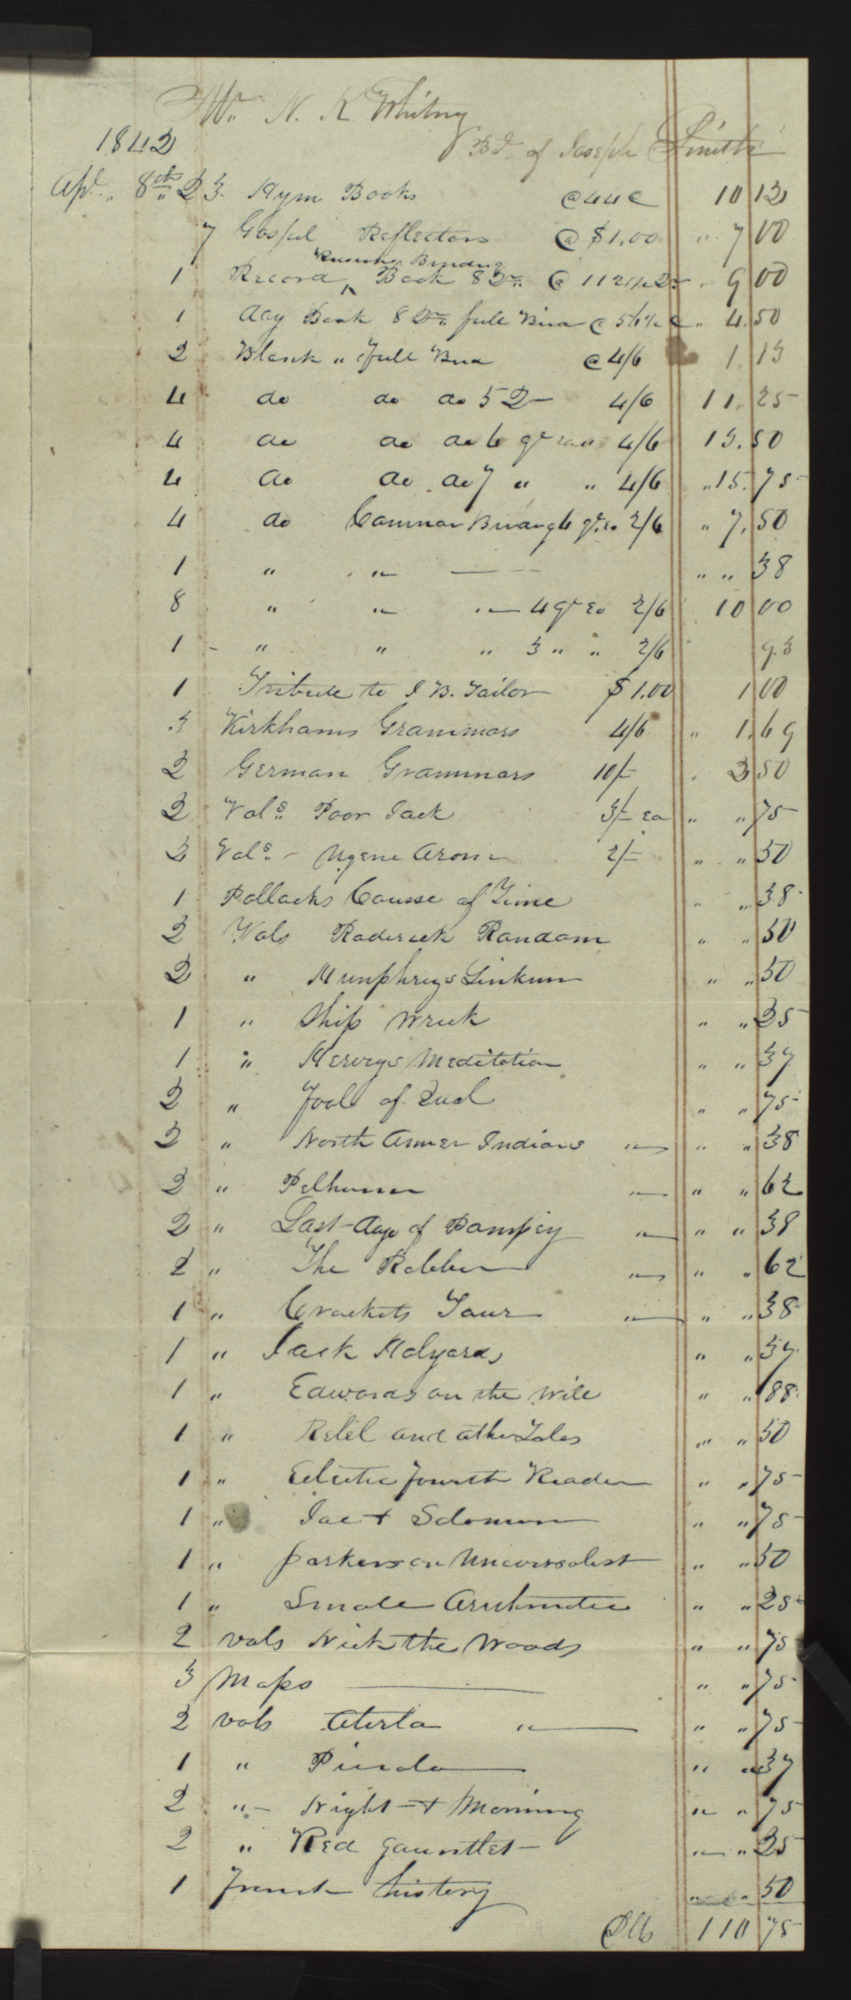 Mr. N. K Whitny
1842 Bt. of Joseph Smith
Apl. 8th 23 Hym Books @44c 10 12
7 Gospel Reflectors @ $1.00 " 7 00
Russia Binding
1 Record Book 8 Qr. @ 112½ " 9 00
1 day Book 8 Qr. full Bind @ 56¼ c " 4.50
2 Blank " full Bnd @ 4/6 1.13
4 do do do 5 Q 4/6 11.25
4 do do do 6 qr 4/6 13.50
4 do do do 7 " " 4/6 " 15.75
4 do Common Binding 6 qr. 2/6 " 7.50
1 " " — " " 38
8 " " " 4 qr Ea 2/6 10 00
1 " " " 3 " " 2/6 93
1 Tribute to J B. Tailor $1.00 1 00
3 Kirkhams Grammars 4/6 " 1.69
2 German Grammars 10/- " 2 50
2 Vols. Poor Jack 3/- Ea " " 75
2 Vols. - Ugene Arom 2/- " " 50
1 Pollacks Course of Time " " 38
2 Vols Roderick Random " " 50
2 " Humphreys Linkum " " 50
1 " Ship Wreck " " 25
1 " Herveys Meditation " " 37
2 " Fool of Qual " " 75
2 " North Amer Indians " " " 38
2 " Pelham " " 62
2 " Last days of Pompey " " 38
2 " The Robber " " 62
1 " Crockets Tour " " 38
1 " Jack Halyard " " 37
1 " Edwards on the Will " 88
1 " Rebel and other Tales " " 50
1 " Eclectic fourth Reader " " 75
1 " Jac + Solomon " " 75
1 " parker on Universalist " " 50
1 " Smale Arithmetic " " 25
2 vols Nick the Woods " " 75
3 Maps — " " 75
2 vols " " " 75
1 " " 37
2 " Night + Morning " " 75
2 " Red Gauntlet " " 25
1 French history " " 50
110 75